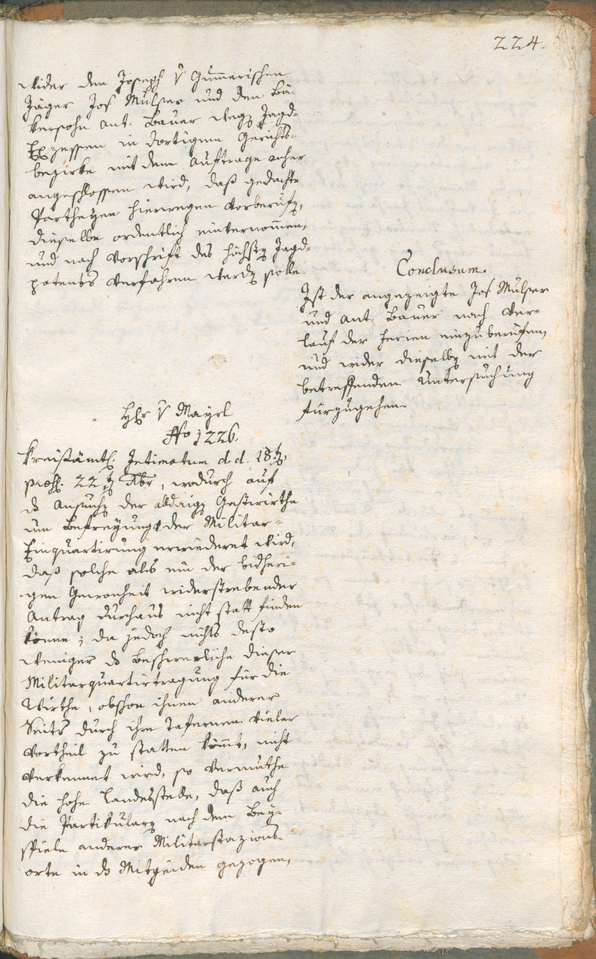 224.
wider den Joseph v Gummerischen
Jäger Jos Mulser und den Bä-
kersohn Ant. Bauer wegen Jagd-
Exzessen in dortigem Gerichts-
bezirke mit dem Auftrage anher
angeschlossen wird, daß gedachte
Partheyen hierwegen vorberufen,
dieselbe ordentlich einvernommen,
und nach Vorschrift des höchsten Jagd-
patents verfahren werden solle.
Conclusum.
Ist der angezeigte Jos Mulser
und Ant. Bauer nach Ver-
lauf der Ferien einzuberufen,
und wider dieselben mit der
betreffenden Untersuchung
fürzugehen.
Hr v Mayrl
No 1226.
Kreisämtl. Intimatum d. d. 18ten,
praes. 22ten Xbr, wodurch auf
das Ansuchen der alldaigen Gastwirthe
um Befreyung der Militar-
Einquartirung erwiedert wird,
daß solche als ein der bisheri-
gen Gewohnheit widerstrebender
Antrag durchaus nicht statt finden
könne; da jedoch nichts desto
weniger das Beschwerliche dieser
Militarquartirtragung für die
Wirthe, obschon ihnen anderer
Seits durch ihre Tafernen vieler
Vortheil zu statten kömmt, nicht
verkennet wird, so vermuthe
die hohe Landesstelle, daß auch
die Partikularen nach dem Bey-
spiele anderer Militarstazions-
orte in das Mitleiden gezogen,